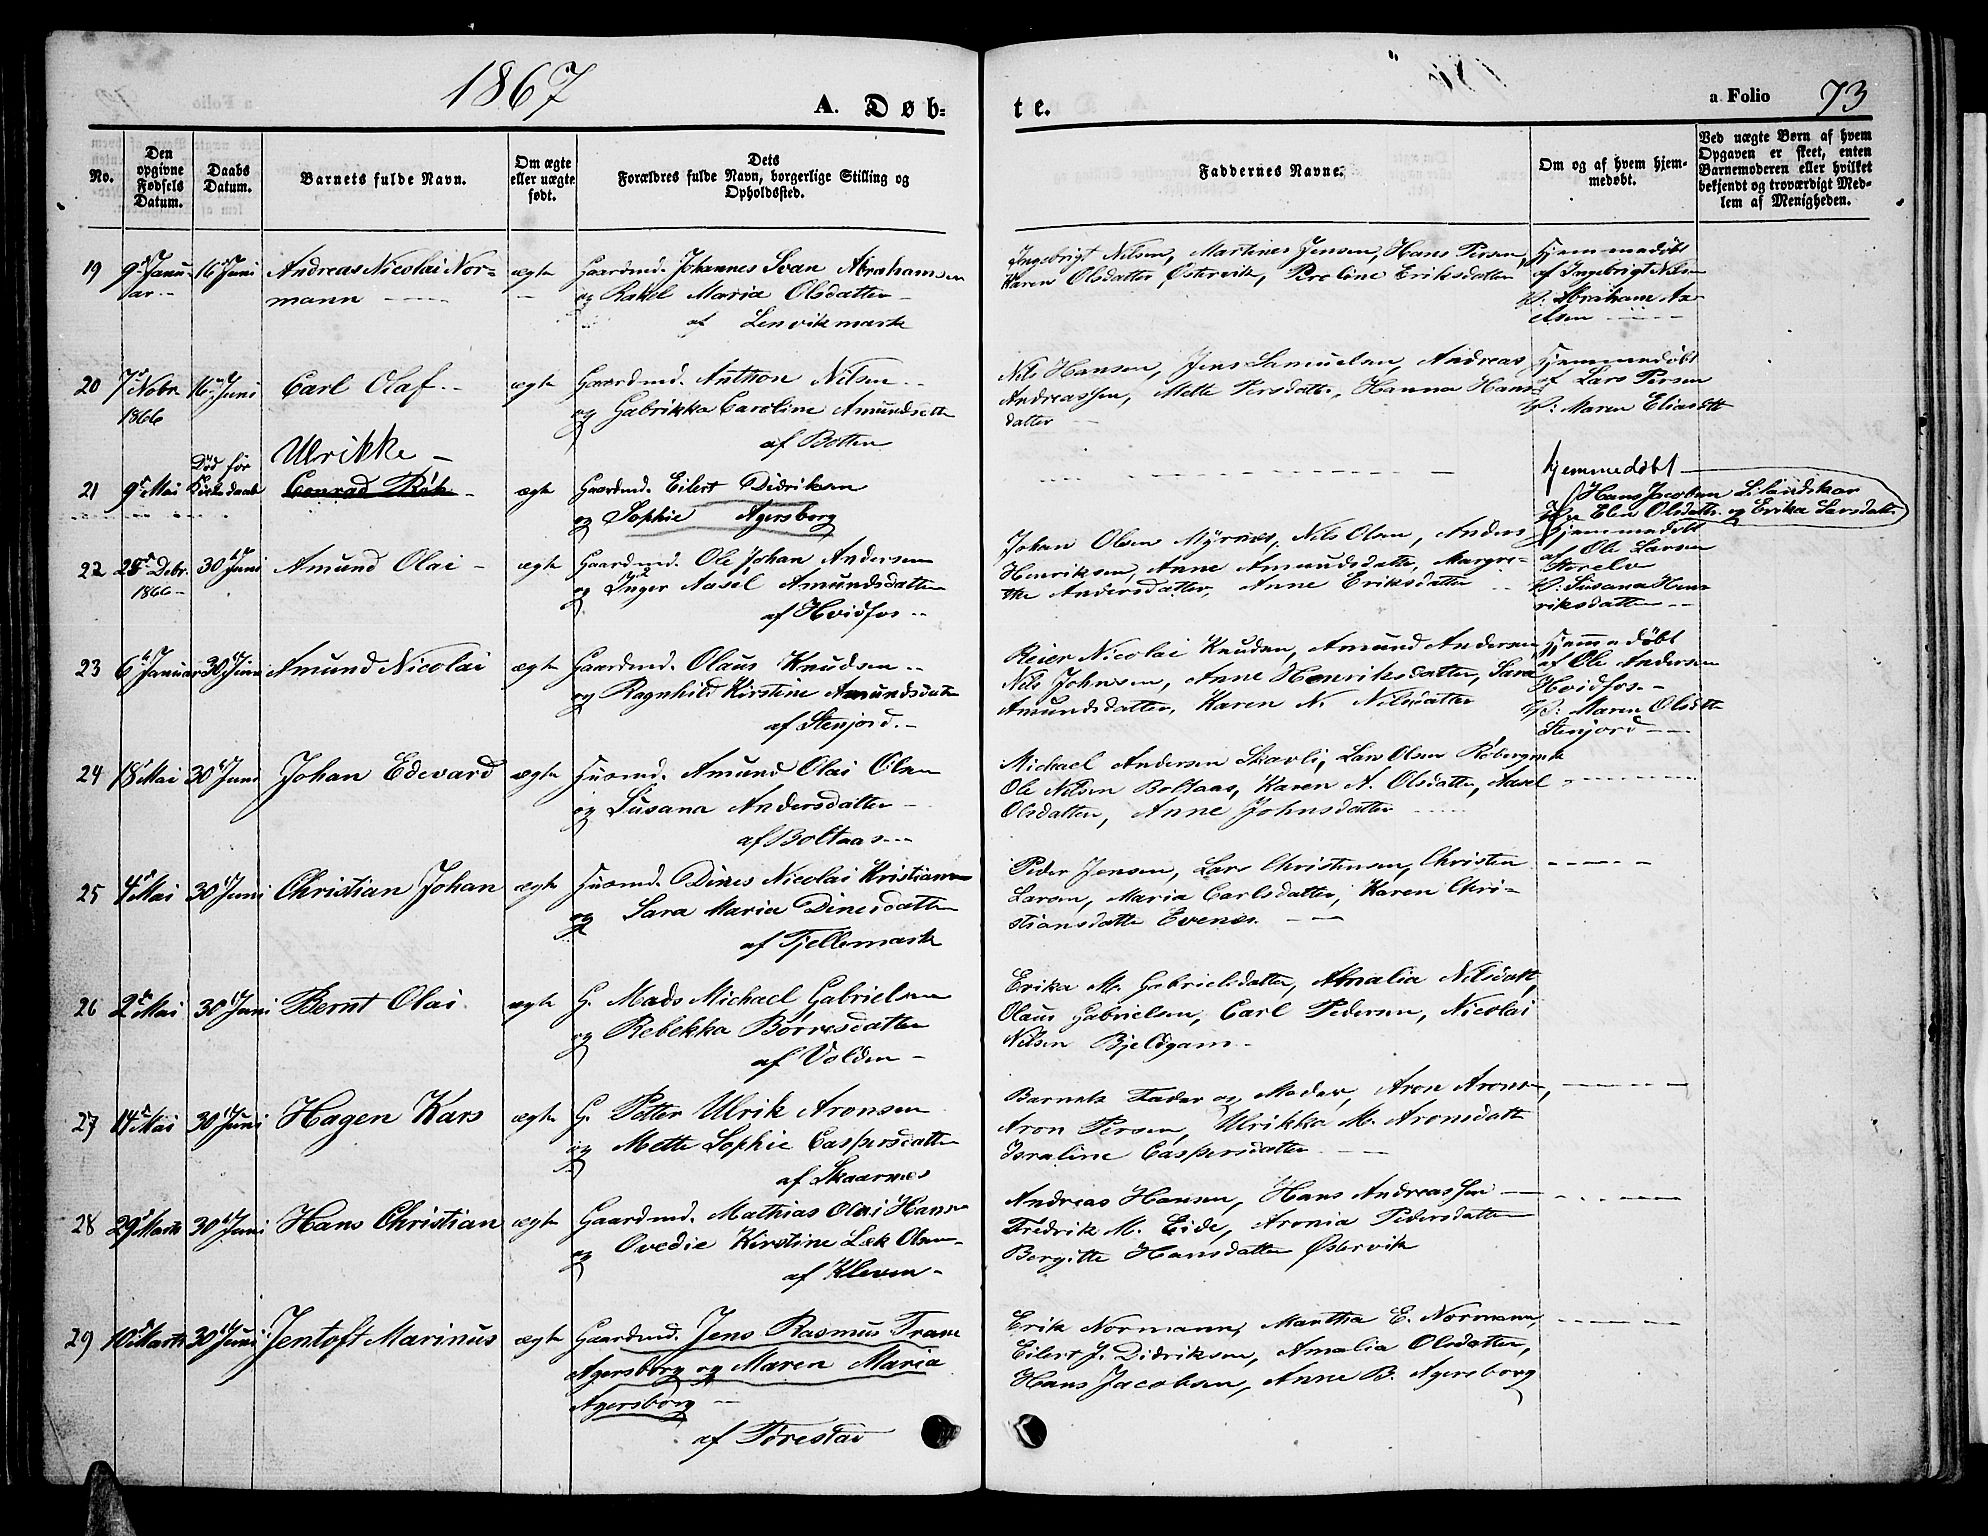 1867
A. Døb-
te.
a Folio 73
No.
Den opgivne Fødsels Datum.
Daabs Datum.
Barnets fulde Navn.
Om ægte eller uægte født.
Dets Forældres fulde Navn, borgerlige Stilling og Opholdssted.
Faddernes Navne.
Om og af hvem hjemmedøbt.
Ved uægte Børn af hvem Opgaven er skeet, enten Barnemoderen eller hvilket bekjendt og troværdigt Medlem af Menigheden.
19 9de Janu- 16de Juni Andreas Nicolai Nor- ægte Gaardmd. Johannes Svan Abrahamsen
ar mann og Rakel Maria Olsdatter
af Lenvikmark
Ingebrigt Nilsen, Martines Jensen, Hans Persen,
Karen Olsdatter Østervik, Peroline Eriksdatter
Hjemmedøbt
af Ingebrigt Nilsen
P: Abraham Ax-
elsen
20 7de Nobr. 16de Juni Carl Olaf ægte Gaardmd. Anthon Nilsen
1866 og Gabrikka Caroline Amundsdtt
af Botten
Nils Hansen, Jens Samuelsen, Andreas
Andreassen, Mette Persdatter, Hanna Hans-
datter
Hjemmedøbt
af Lars Persen
P: Maren Eliasdtt
Ulrikke
21 9de Mai Død før Kirkedaab Conrad ægte Gaardmd. Eilert Didriksen
og Sophie Agersborg
hjemmedøbt
af Hans Jacobsen Lilandskar
P: Elen Olsdatter og Erika Larsdatter
22 28de Debr. 30de Juni Amund Olai ægte Gaardmd. Ole Johan Andersen
1866 og Inger Aasel Amundsdatter
af Hvidfos
Johan Olsen Myrnes, Nils Olsen, Anders
Henriksen, Anne Amundsdatter, Margre-
the Andersdatter, Anne Eriksdatter
Hjemmedøbt
af Ole Larsen
Storelv
P: Susana Hen-
riksdatter
23 6te Januar 30de Juni Amund Nicolai ægte Gaardmd. Olaus Knudsen
og Ragnhild Kirstine Amundsdatter
af Stenjord
Reier Nicolai Knudsen, Amund Andersen,
Nils Johnsen, Anne Henriksdatter, Sara
Amundsdatter, Karen N. Nilsdatter
Hjemmedøbt
af Ole Andersen
Hvidfos
P: Maren Olsdtt
Stenjord
24 18de Mai 30de Juni Johan Edevard ægte Husmd. Amund Olai Olsen
og Susana Andersdatter
af Boltaas
Michael Andersen Skarli, Lars Olsen
Ole Nilsen Boltaas, Karen A. Olsdatter, Aasel
Olsdatter, Anne Johnsdatter
25 4de Mai 30de Juni Christian Johan ægte Husmd. Dines Nicolai Kristiansen
og Sara Maria Dinesdatter
af Fjellemark
Peder Jensen, Lars Christensen, Christen
Larsen, Maria Carlsdatter, Karen Chri-
stiansdatter Evenes
26 2de Mai 30de Juni Bernt Olai ægte G. Mads Michael Gabrielsen
og Rebekka Borresdatter
af Volden
Erika M. Gabrielsdatter, Amalia Nilsdatt,
Olaus Gabrielsen, Carl Pedersen, Nicolai
Nilsen Bjeldgam
27 14de Mai 30de Juni Hagen Kars ægte G. Petter Ulrik Aronsen
og Mette Sophie Caspersdatter
af Skaarnes
Barnets Fader og Moder, Aron Arons-
Aron Persen, Ulrikka M. Aronsdatt
Israline Caspersdatter
28 29de Marts 30de Juni Hans Christian ægte Gaardmd. Mathias Olai Hansen
og Ovedie Kirstine Lek Olsen
af Kleven
Andreas Hansen, Hans Andreassen
Fredrik M. Eide, Aronia Pedersdatter
Bergitte Hansdatter Østervik
29 10de Marts 30de Juni Jentoft Marinus ægte Gaardmd. Jens Rasmus Frane
Agersborg og Maren Maria
Agersborg
af Tørestad
Erik Normann, Martha E. Normann,
Eilert J. Didriksen, Amalia Olsdatter,
Hans Jacobsen, Anne B. Agersborg